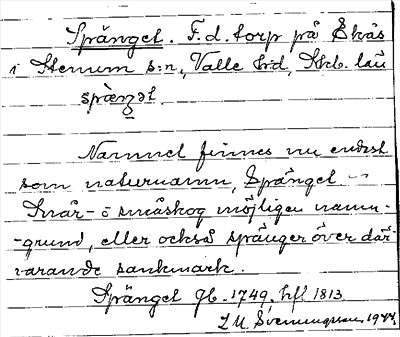 Spänget. F. d. torp på Ekås
i Stenum s:n, Valle hrd, Skb. län
spæŋət
Namnet finnes nu endast
som naturnamn, Spänget --
Snår- o småskog möjligen namn-
-grund, eller också spänger över där-
varande sankmark.
Spänget Gb. 1749, hfl 1813
Sveningsson